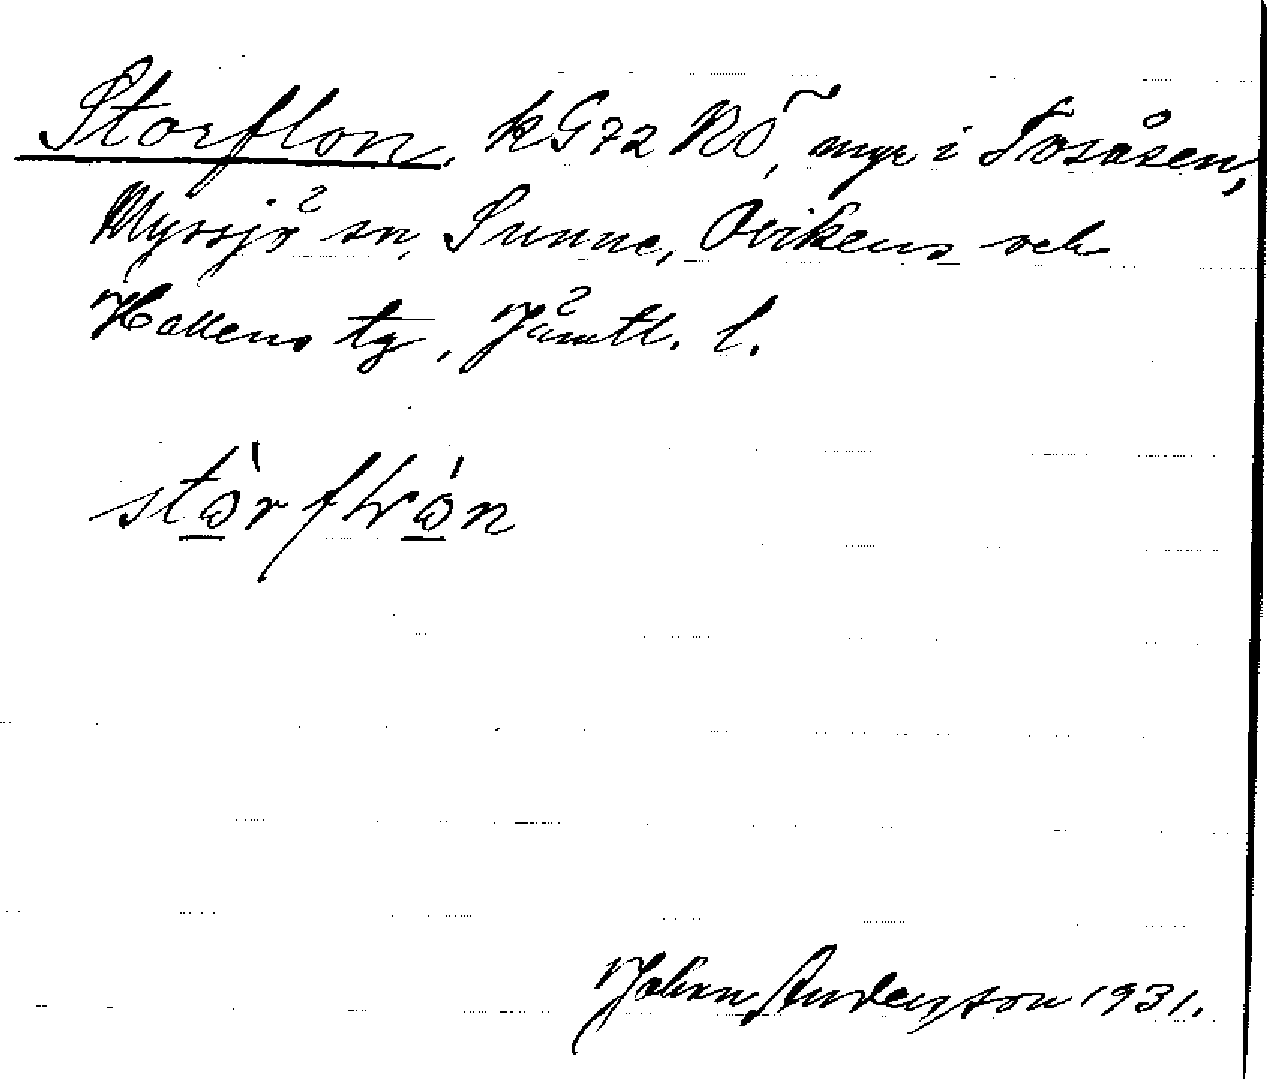 Storflon, kG72 RÖ, myr i Tosåsen,
Myssjö sn, Sunne, Ovikens och
Hallens tg, Jämtl. l.
Johan Andersson 1931.